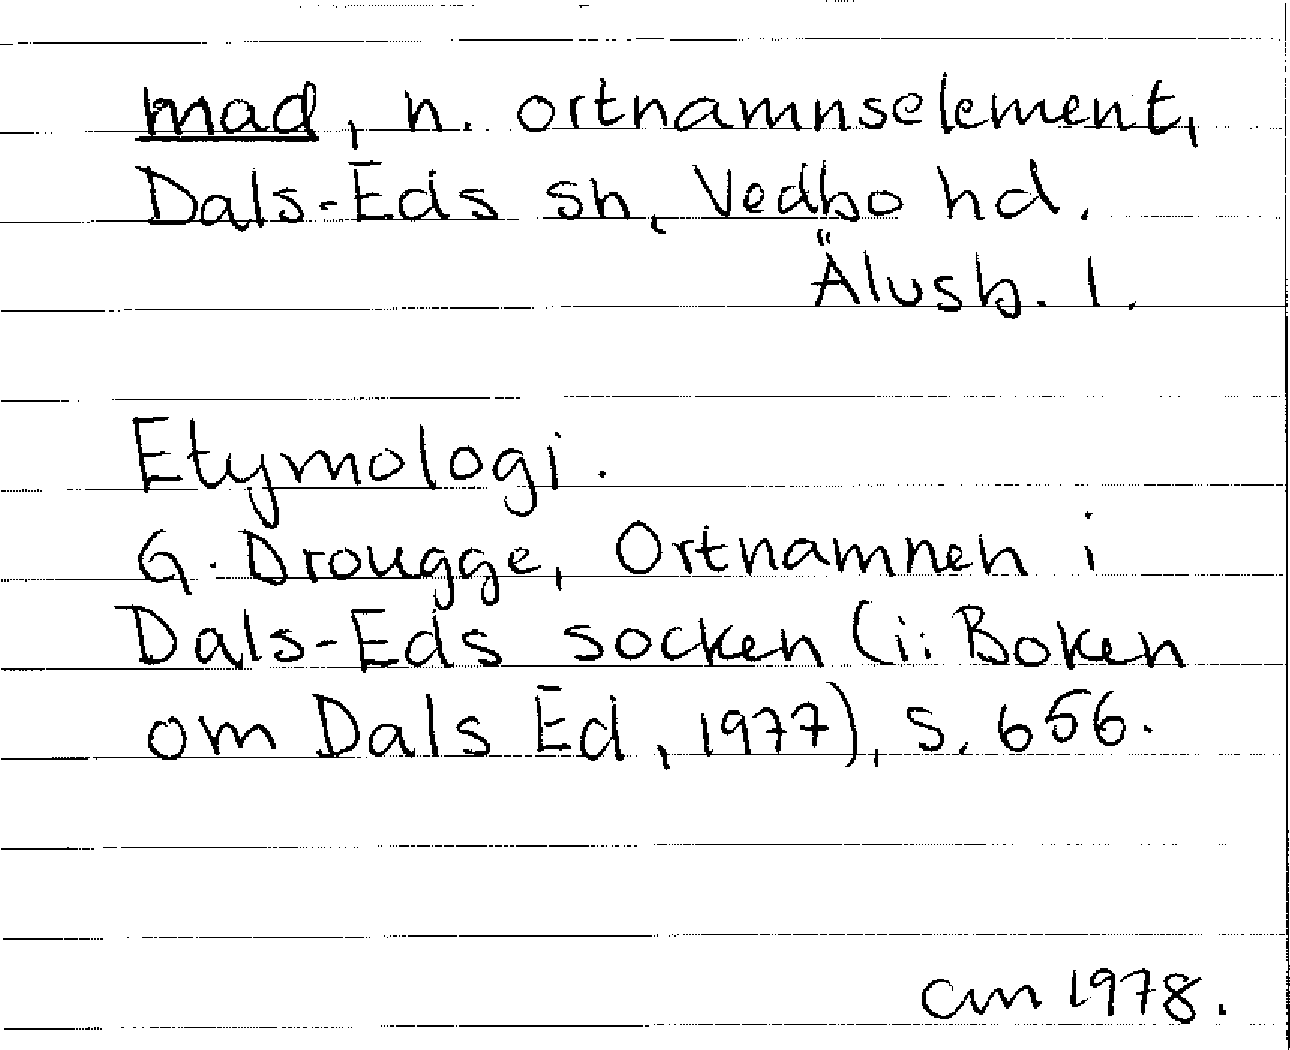 mad, n. ortnamnselement,
Dals-Eds sn, Vedbo hd.
Älvsb. l.
Etymologi.
G. Drougge, Ortnamnen i
Dals-Eds socken (i: Boken
om Dals Ed, 1977), s. 656.
am 1978.